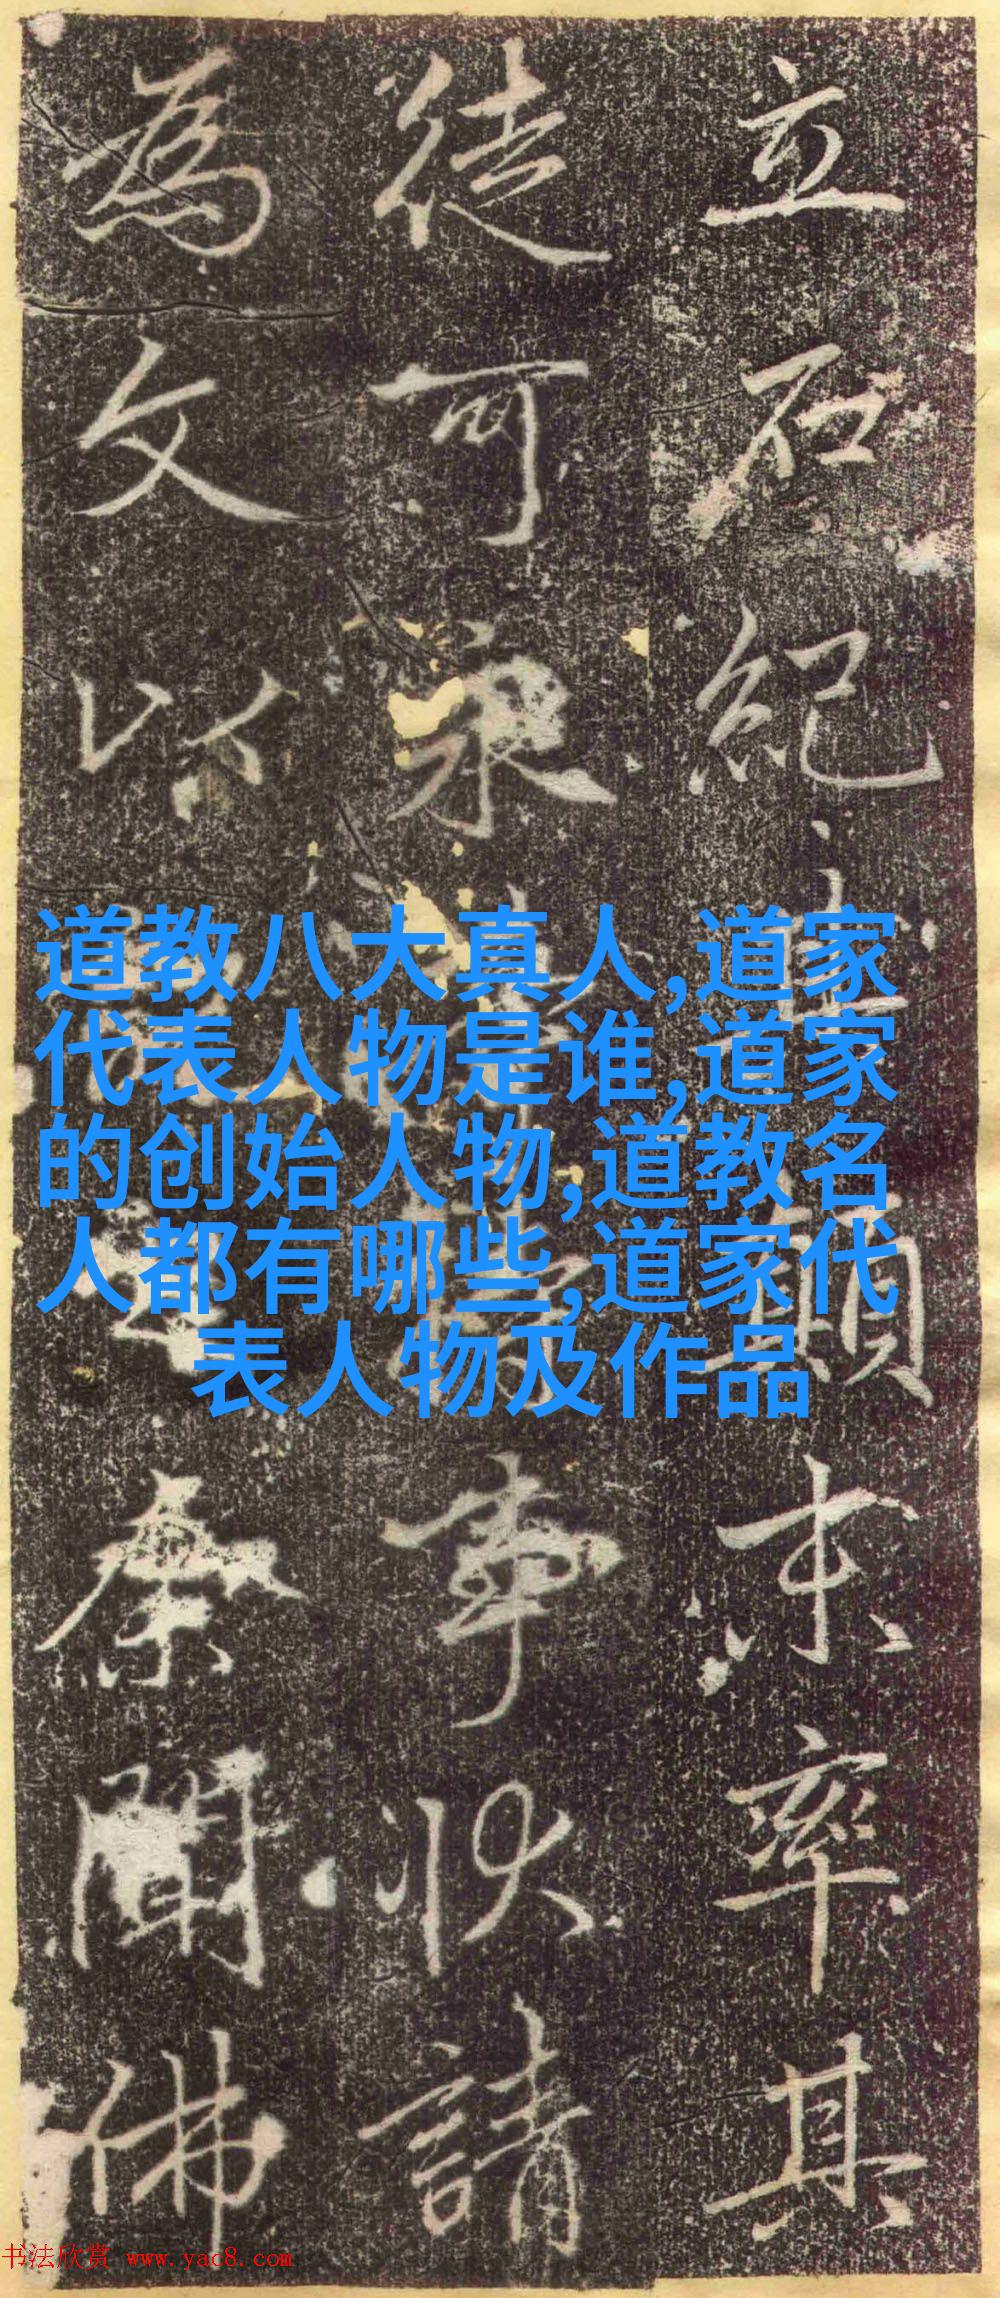 立石紀末率其
徒可事狀請
為文以余聞佛
道教八大真人,道家
代表人物是谁,道家
的创始人物,道教名
人都有哪些,道家代
表人物及作品
书法欣赏 www.yac8.com